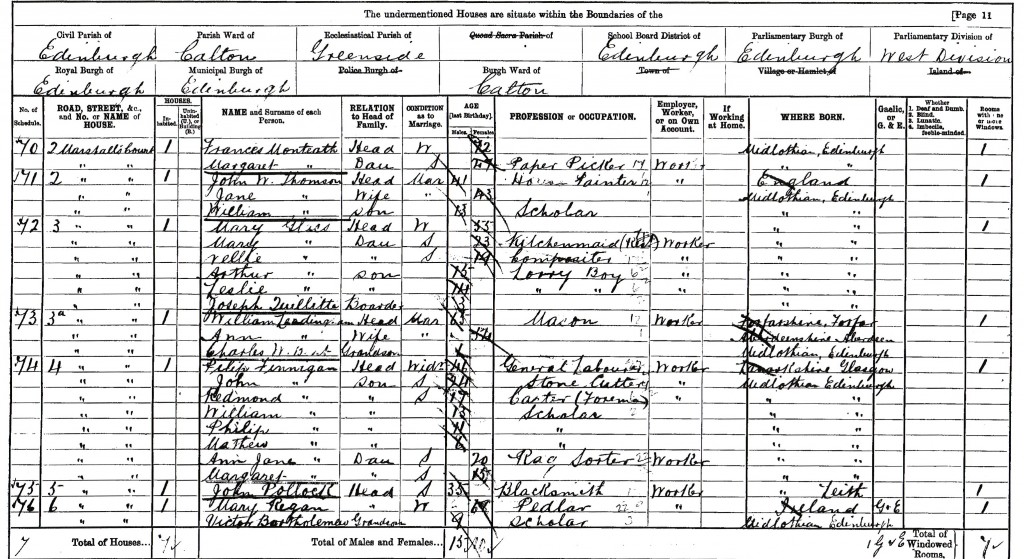 The undermentioned Houses are situate within the Boundaries of the [Page 11
Civil Parish of Parish Ward of Ecclesiastical Parish of Quoad Sacra Parish of School Board District of Parliamentary Burgh of Parliamentary Division of
Edinburgh Calton Greenside Edinburgh Edinburgh West Division
Royal Burgh of Municipal Burgh of Police Burgh of Burgh Ward of Town of Village or Hamlet of Island of
Edinburgh Edinburgh Calton
No. of Schedule. ROAD, STREET, &c., and No. or NAME of HOUSE. HOUSES. Inhabited. Uninhabited (U.), or Building (B.) NAME and Surname of each Person. RELATION to Head of Family. CONDITION as to Marriage. AGE [last Birthday]. Males. Females. PROFESSION or OCCUPATION. Employer, Worker, or on Own Account. If Working at Home. WHERE BORN. Gaelic, or G. & E. Whether 1. Deaf and Dumb. 2. Blind. 3. Lunatic. 4. Imbecile, feeble-minded. Rooms with one or more Windows.
70 2 Marshall's Court 1 Frances Monteath Head W 72 Midlothian, Edinburgh 1
" " Margaret " Dau S 47 Paper Picker Worker " "
71 2 " " 1 John W. Thomson Head Mar 41 House Painter " England 1
" " Jane " Wife " 43 Midlothian, Edinburgh
" " William " Son 13 Scholar " "
72 3 " " 1 Mary Glass Head W 55 " " 1
" " Mary " Dau S 23 Kitchenmaid Worker " "
" " Nellie " " S 19 Compositer " " "
" " Arthur " Son 15 Lorry Boy " " "
" " Leslie " " 14 " " " "
" " Joseph Boarder 13 " "
73 3a " " 1 William Head Mar 63 Mason Worker Forfarshire, Forfar 1
" " Ann " Wife " 54 Aberdeenshire Aberdeen
" " Charles W. Grandson Midlothian, Edinburgh
74 4 " " 1 Philip Finnigan Head Widr 46 General Labourer Worker Lanarkshire Glasgow 1
" " John " Son S 24 Stone Cutter " Midlothian Edinburgh
" " Redmond " " S 19 Carter (Foreman) " " "
" " William " " 13 Scholar " "
" " Philip " " 11 " " "
" " Mathew " " 6 " "
" " Ann Jane " Dau S 20 Rag Sorter Worker " "
" " Margaret " " S 15 " "
75 5 " " 1 John Pollock Head S 35 Blacksmith Worker " Leith 1
76 6 " " 1 Mary Regan " W 69 Pedlar Ireland G&E 1
" " Victor Bartholemew Grandson 9 Scholar Midlothian Edinburgh
7 Total of Houses... 7 Total of Males and Females... 15 1 G&E Total of Windowed Rooms, 7